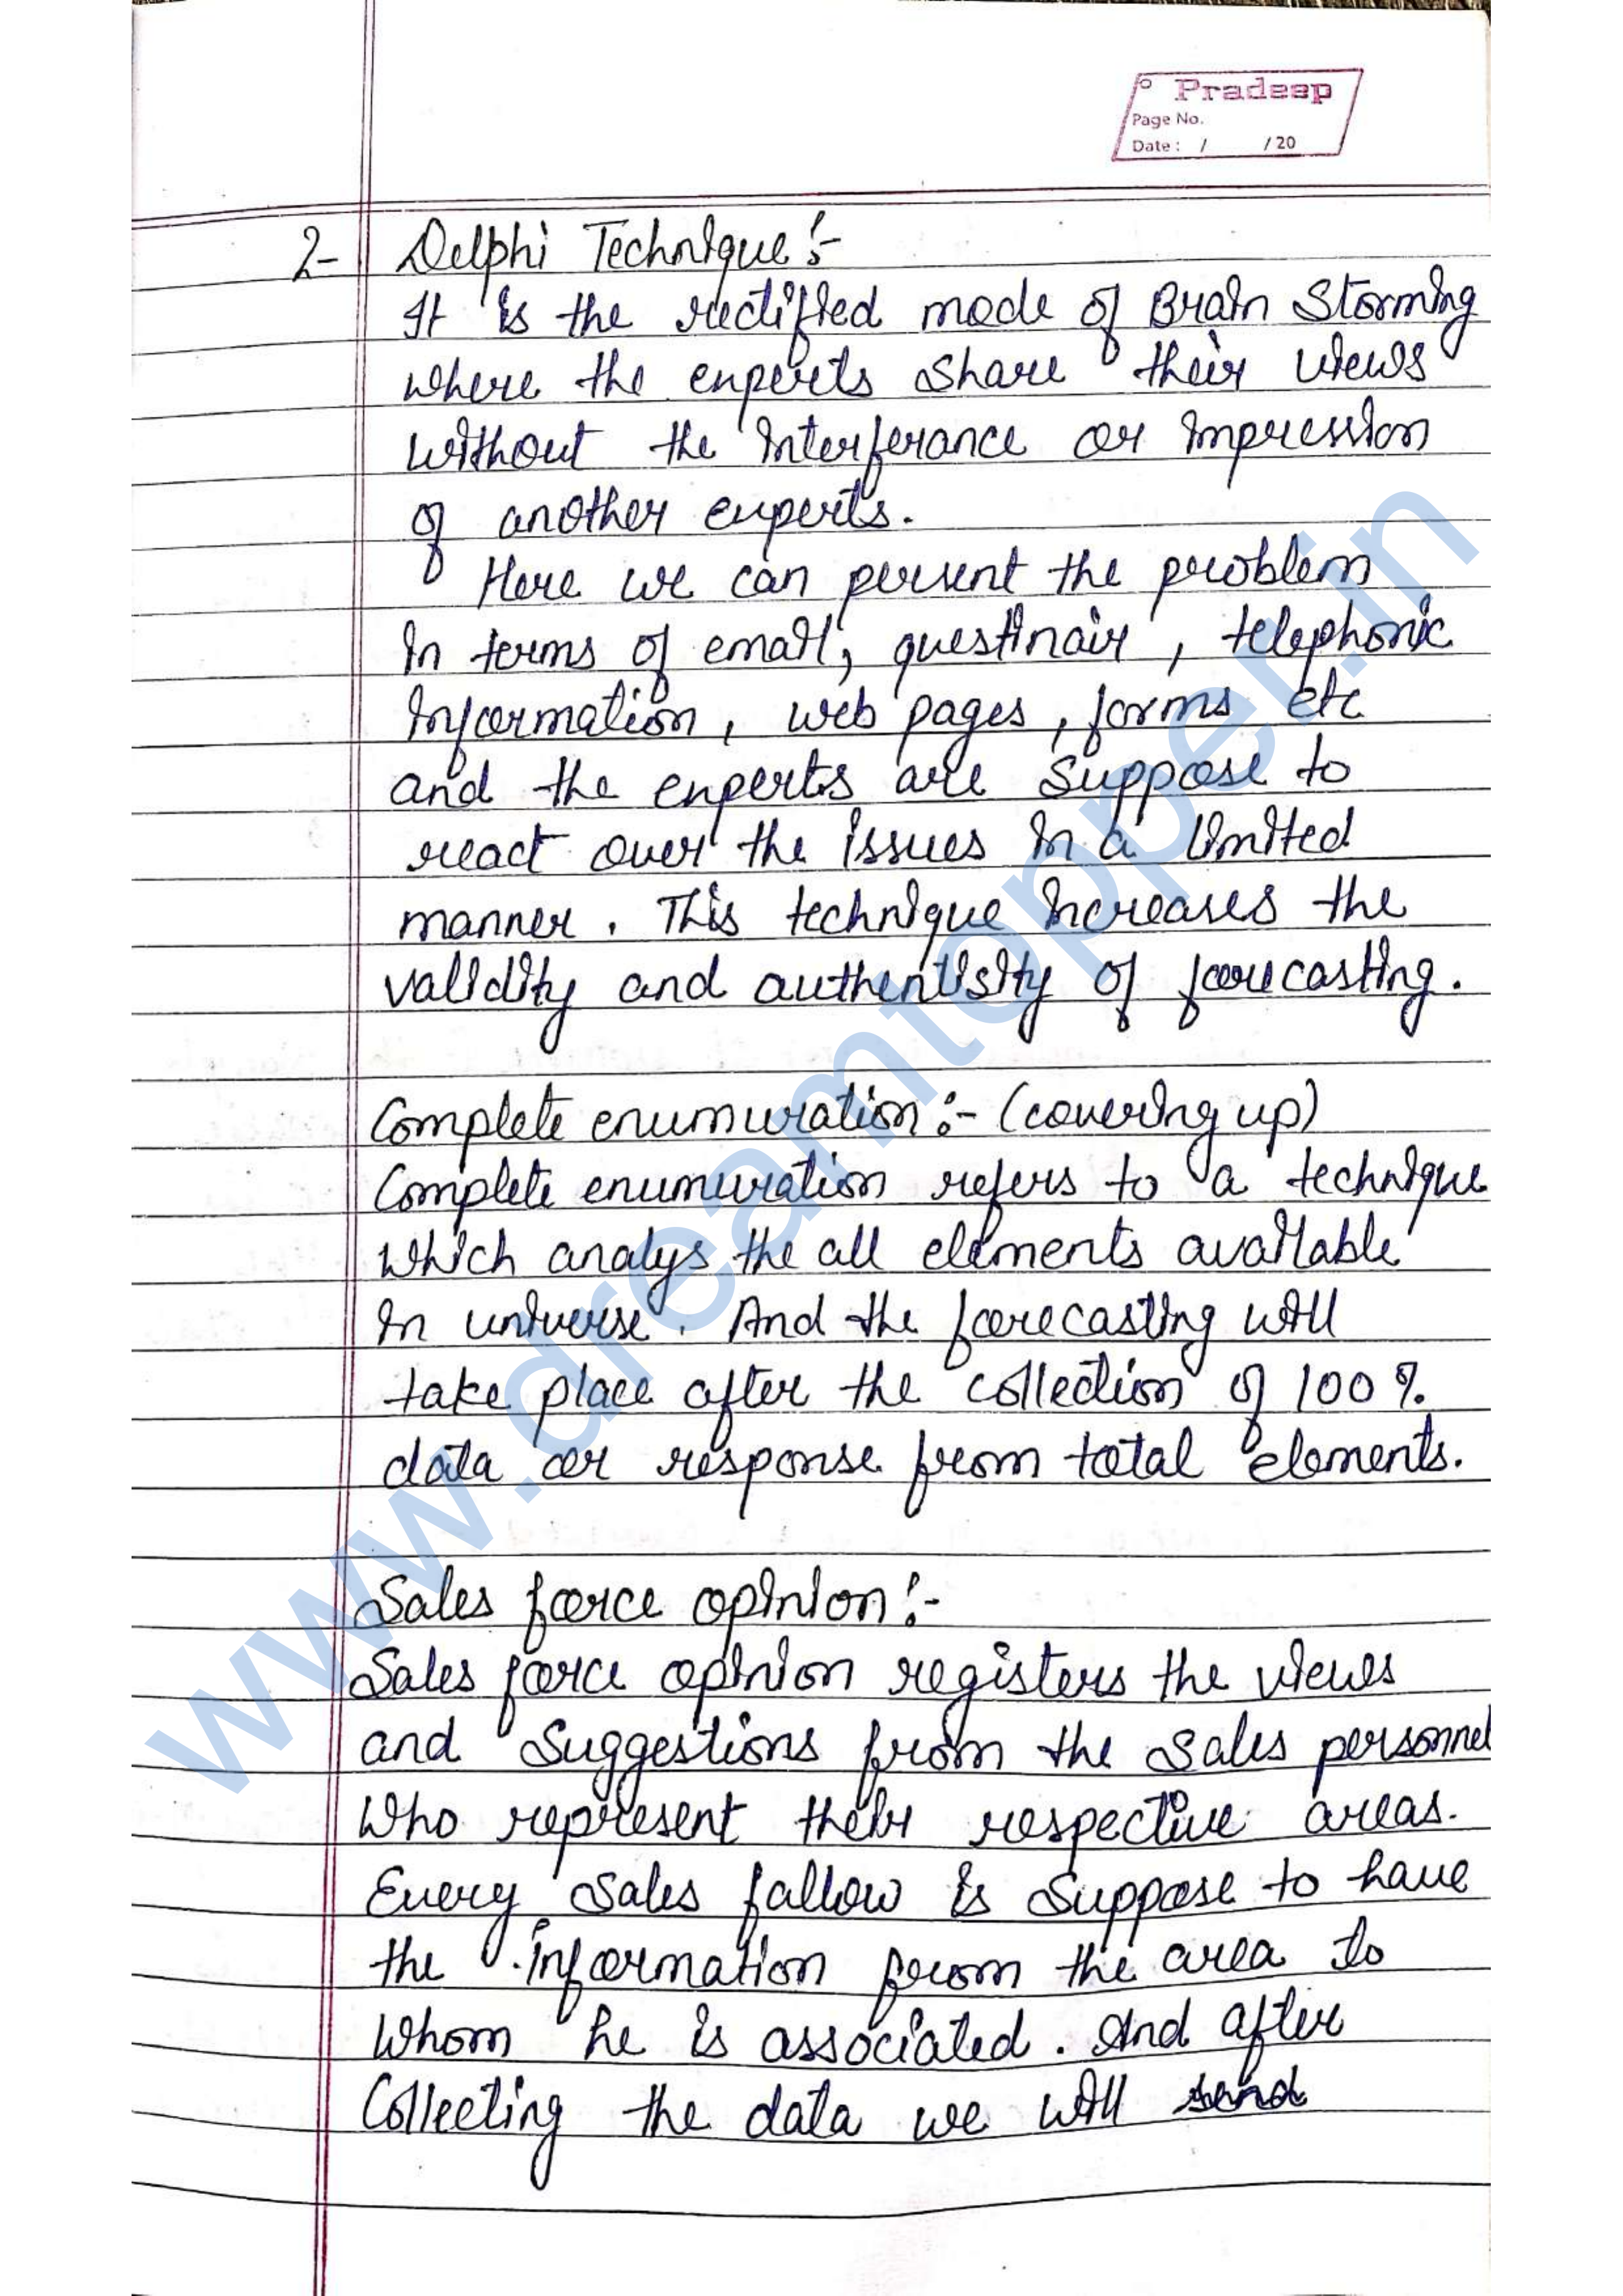 Pradeep
Page No.
Date : / /20
2- Delphi Technique :-
It is the rectified mode of Brain Storming
where the experts share their views
without the interferance or impression
of another experts.
Here we can persent the problem
in terms of email, questinair, telephonic
information, web pages, forms etc
and the experts are suppose to
react over the issues in a limited
manner. This technique increases the
validity and authentisity of forecasting.
Complete enumuration :- (covering up)
Complete enumuration refers to a technique
which analys the all elements available
in universe. And the forecasting will
take place after the collection of 100 %
data or response from total elements.
Sales force opinion :-
Sales force opinion registers the views
and suggestions from the sales personnel
who represent their respective areas.
Every sales fallow is suppose to have
the information from the area to
whom he is associated. And after
Collecting the data we will send
www.dreamtopper.in